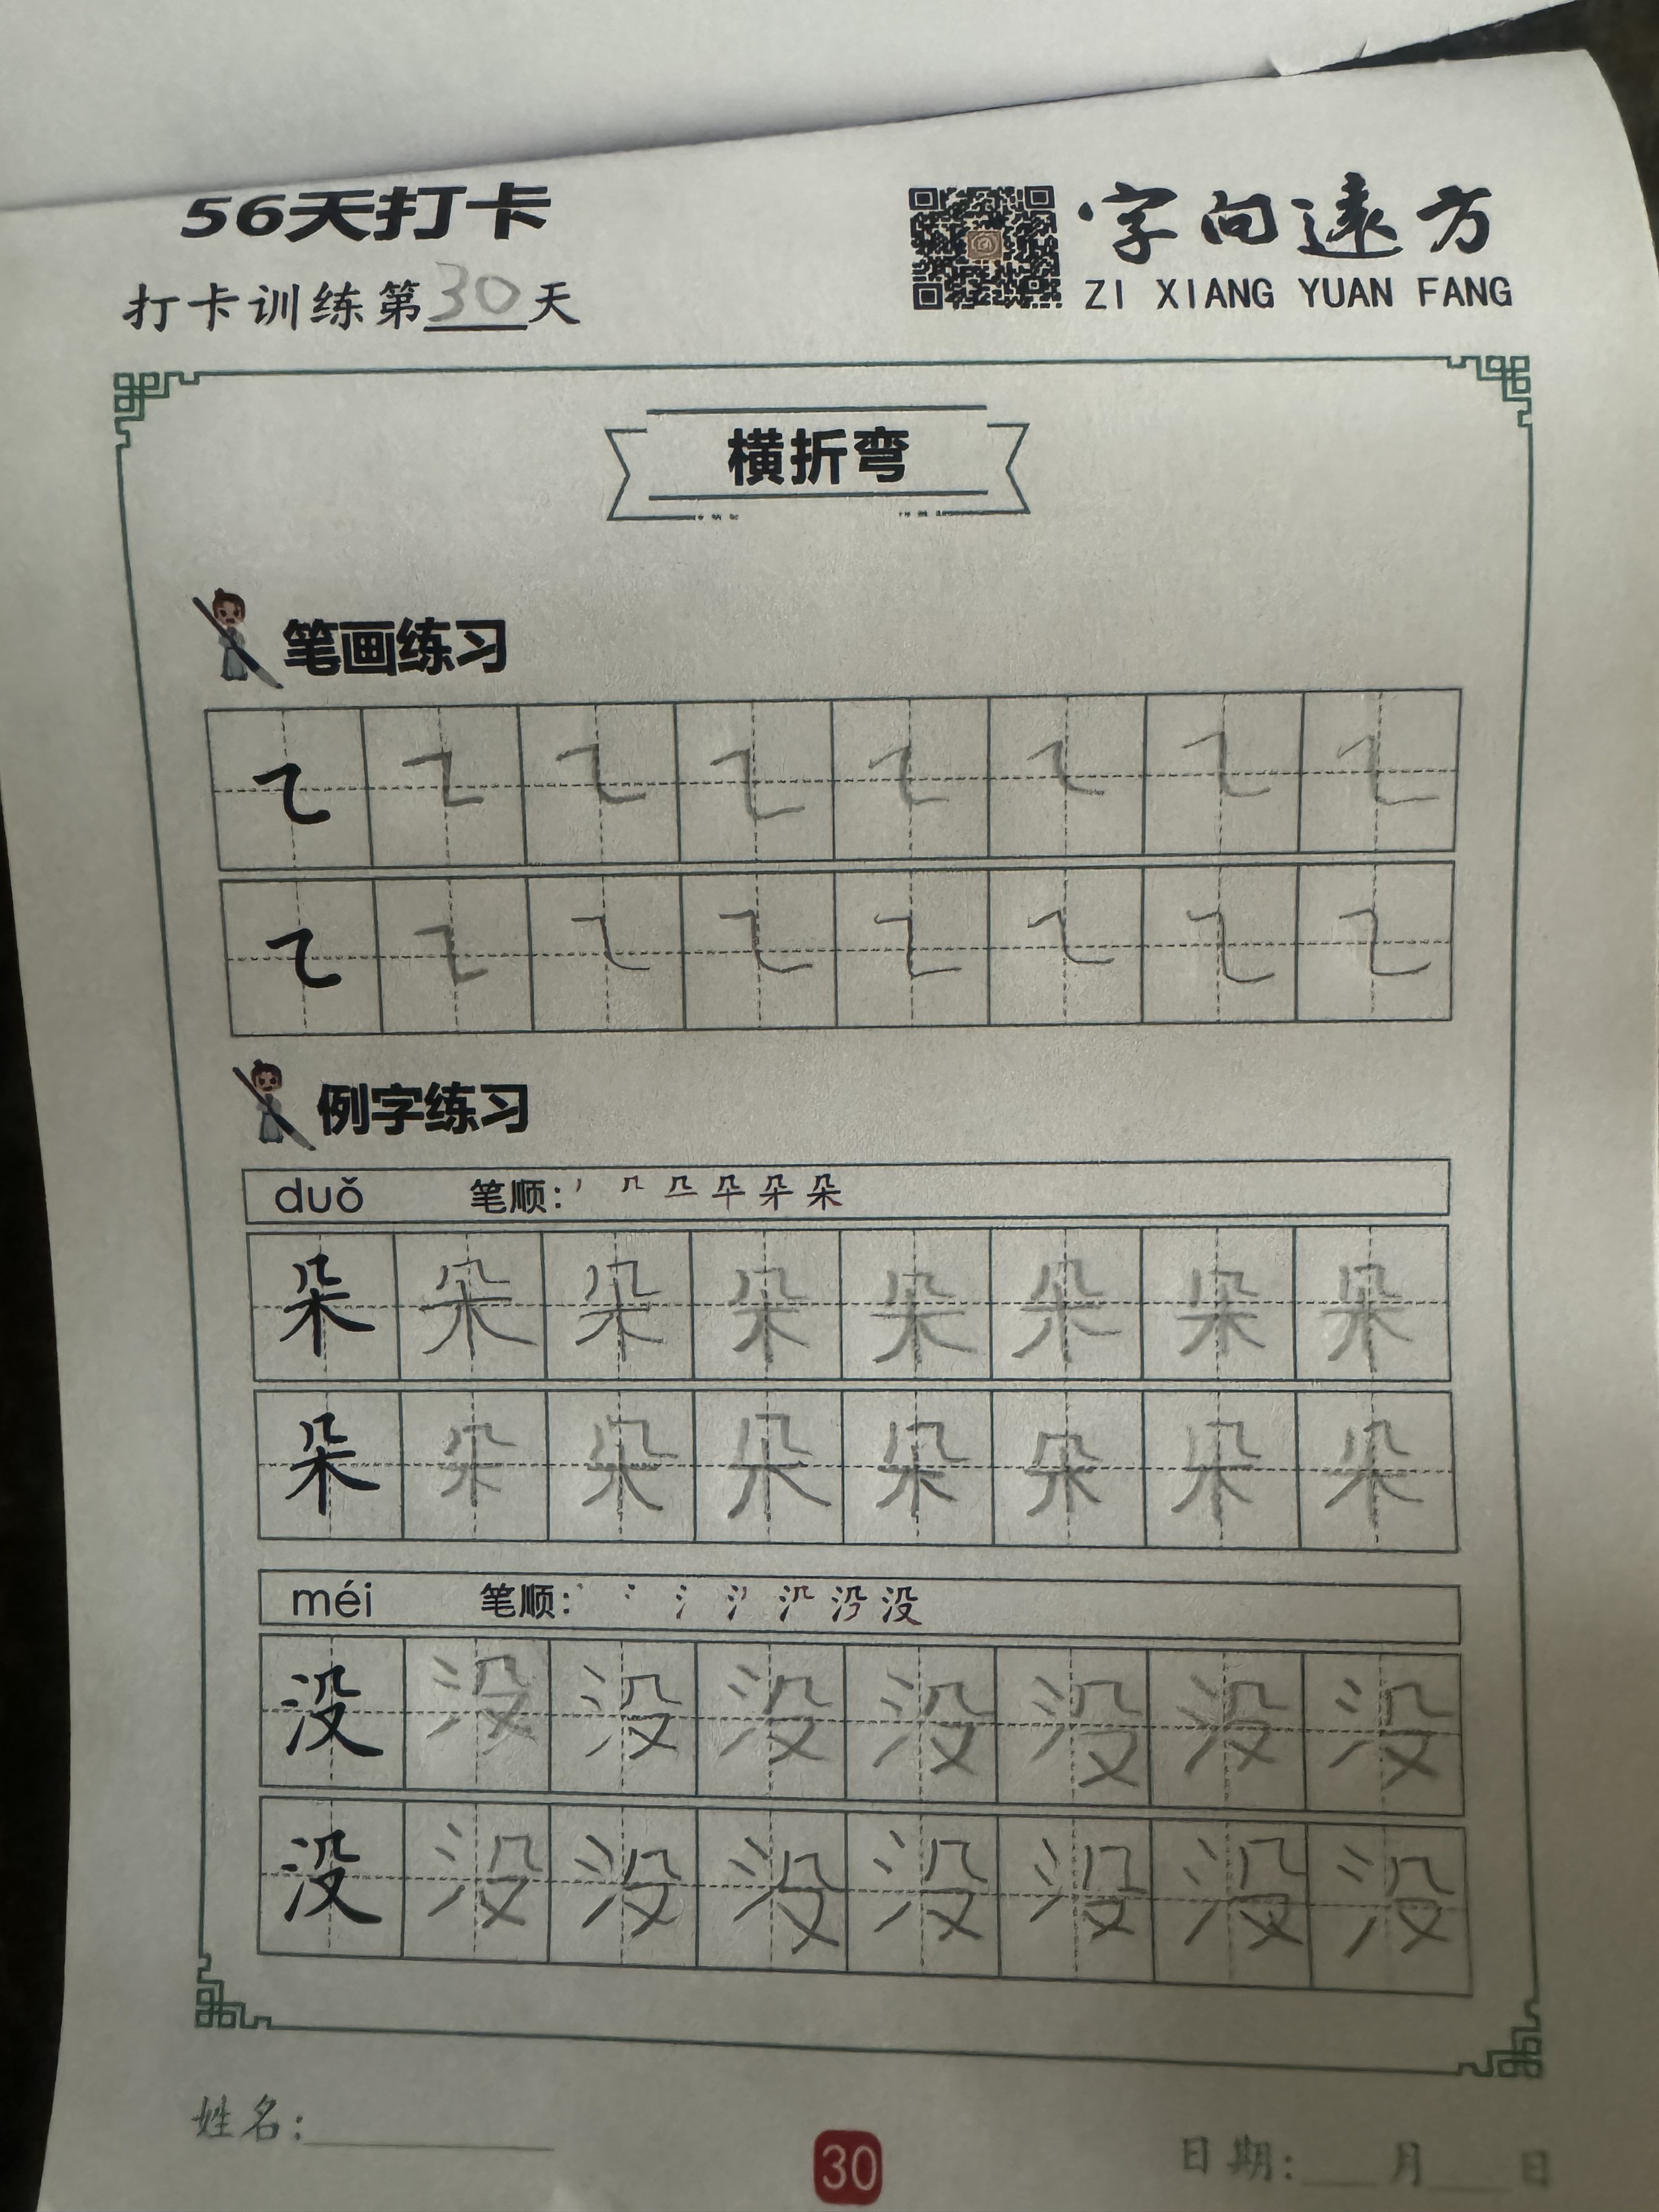 56天打卡
字向遠方
ZI XIANG YUAN FANG
打卡训练第30天
横折弯
笔画练习
㇍ ㇍ ㇍ ㇍ ㇍ ㇍ ㇍ ㇍
㇍ ㇍ ㇍ ㇍ ㇍ ㇍ ㇍ ㇍
例字练习
duǒ 笔顺: 朵
朵 朵 朵 朵 朵 朵 朵 朵
朵 朵 朵 朵 朵 朵 朵 朵
méi 笔顺: 没
没 没 没 没 没 没 没 没
没 没 没 没 没 没 没 没
姓名:
30
日期: 月 日